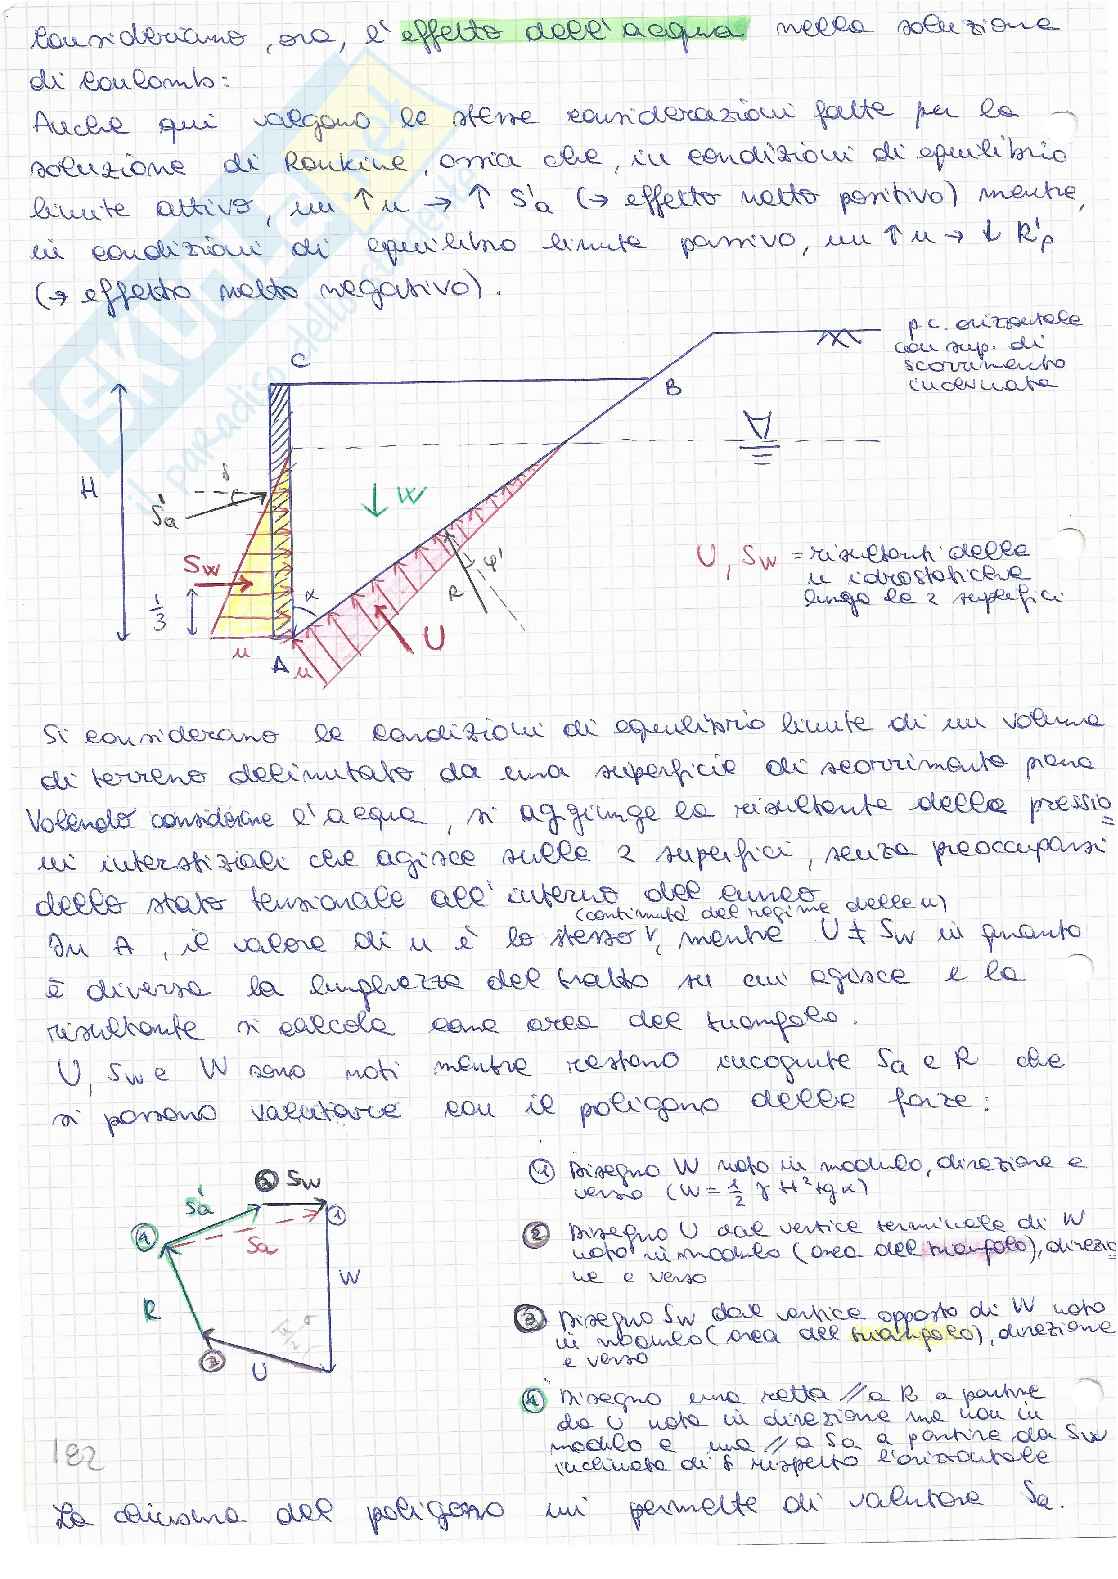 Consideriamo, ora, l'effetto dell'acqua nella soluzione
di Coulomb:
Anche qui valgono le stesse considerazioni fatte per la
soluzione di Rankine, ossia che, in condizioni di equilibrio
limite attivo, un ↑u → ↑ S'a (→ effetto netto positivo) mentre,
in condizioni di equilibrio limite passivo, un ↑u → ↓ R'p
(→ effetto netto negativo).
p.c. orizzontale
con sup. di
scorrimento
inclinata
C
B
H
δ
S'a
W
Sw
1/3
α
R
φ'
U
u
A
u
U, Sw = risultanti delle
u idrostatiche
lungo le 2 superfici
Si considerano le condizioni di equilibrio limite di un volume
di terreno delimitato da una superficie di scorrimento piana
Volendo considerare l'acqua, si aggiunge la risultante delle pressio
ni interstiziali che agisce sulle 2 superfici, senza preoccuparsi
dello stato tensionale all'interno del cuneo
(continuità del regime delle u)
In A, il valore di u è lo stesso, mentre U ≠ Sw in quanto
è diversa la lunghezza del tratto su cui agisce e la
risultante si calcola come area del triangolo.
U, Sw e W sono noti mentre restano incognite Sa e R che
si possono valutare con il poligono delle forze:
③ Sw
S'a
①
④
Sa
W
R
②
U
① Disegno W noto in modulo, direzione e
verso (W = 1/2 γ H² tg α)
② Disegno U dal vertice terminale di W
noto in modulo (area del triangolo), direzio
ne e verso
③ Disegno Sw dal vertice opposto di W noto
in modulo (area del triangolo), direzione
e verso
④ Disegno una retta // a R a partire
da U nota in direzione ma non in
modulo e una // a Sa a partire da Sw
inclinata di δ rispetto l'orizzontale
182
La chiusura del poligono mi permette di valutare Sa.
SKUOLA.net
il paradiso dello studente